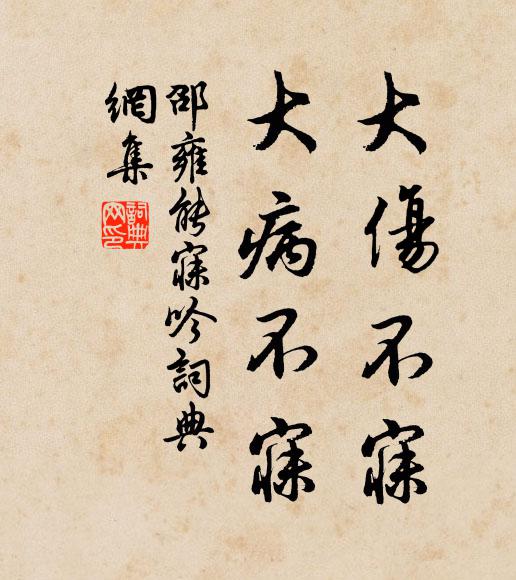 大傷不寐
大病不寐
邵雍能寐吟詞典
網集
詞典
网印